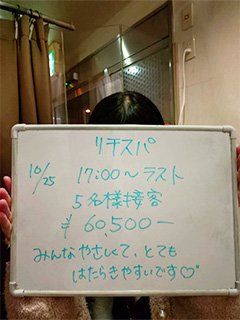 リチスパ
10/25 17:00〜ラスト
5名様接客
¥60,500ー
みんなやさしくて、とても
はたらきやすいです♡